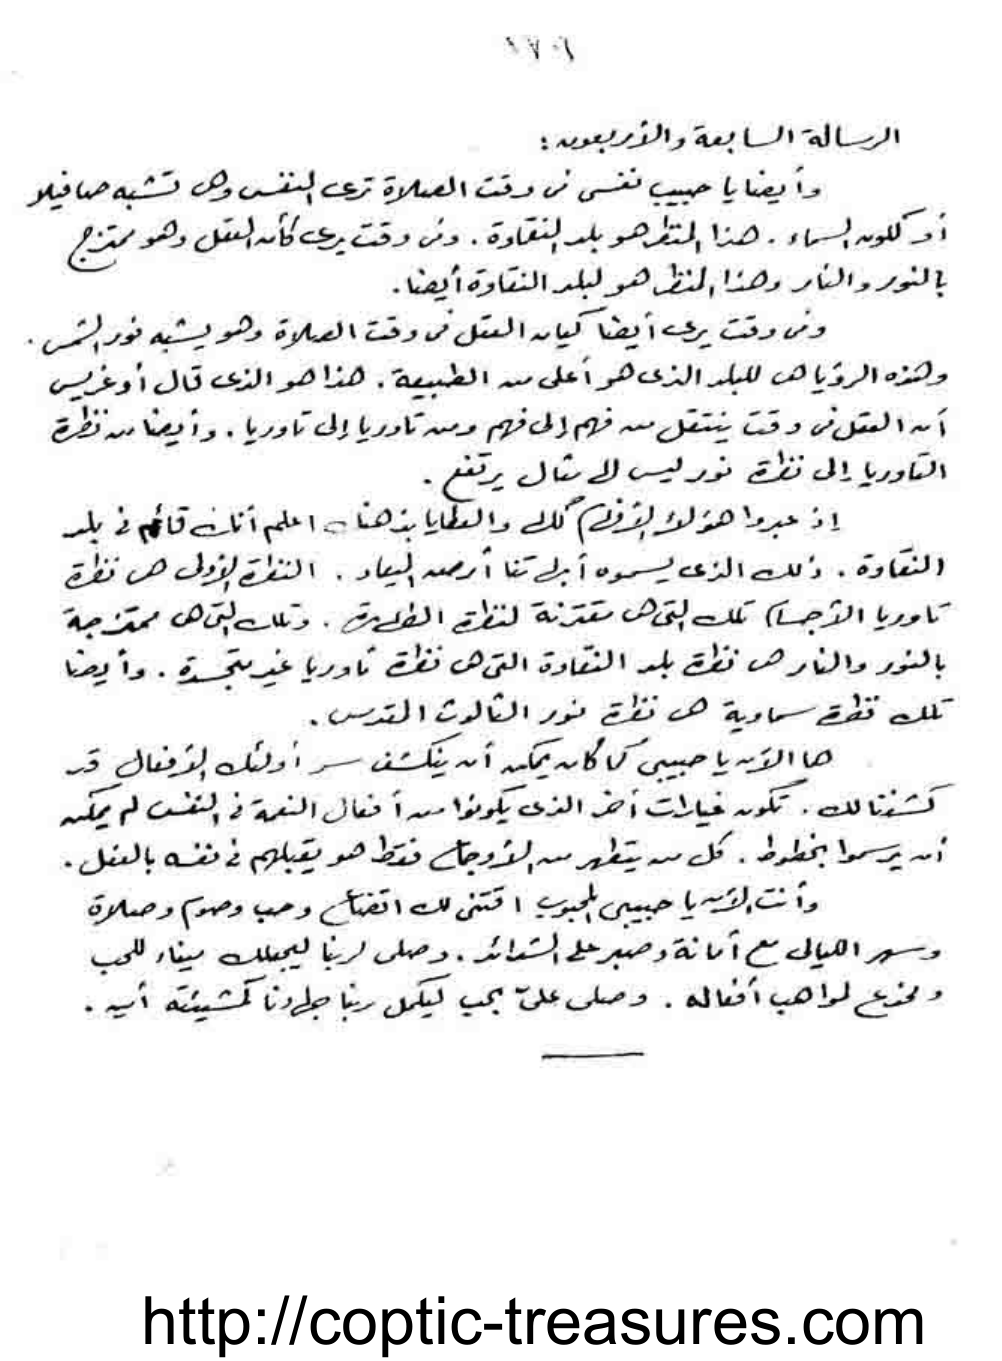 الرسالة السابعة والأربعون :
وأيضا يا حبيب نفسى فى وقت الصلاة ترى النفس وهى تشبه صافيلا
أو كلون السماء . هذا المنظر هو بلد النقاوة . وفى وقت يرى كأن العقل وهو ممتزج
بالنور والنار وهذا المنظر هو لبلد النقاوة أيضا .
وفى وقت يرى أيضا كيان العقل فى وقت الصلاة وهو يشبه نور الشمس .
وهذه الرؤيا هى للبلد الذى هو أعلى من الطبيعة . هذا هو الذى قال أوغريس
أن العقل فى وقت ينتقل من فهم إلى فهم ومن تاوريا إلى تاوريا . وأيضا من نظرة
التاوريا إلى نظرة نور ليس له مثال يرتفع .
إذ عبروا هؤلاء كلك والعطايا بذهنك اعلم أنك قائم فى بلد
النقاوة . ذلك الذى يسموه أبهاتنا أرض الميعاد . النظرة الأولى هى نظرة
تاوريا الأجسام تلك التى هى مقترنة لنظرة الطهارة . وتلك التى هى ممتزجة
بالنور والنار هى نظرة بلد النقاوة التى هى نظرة تاوريا غير متجسدة . وأيضا
تلك نظرة سماوية هى نظرة نور الثالوث المقدس .
ها الآن يا حبيبى كما كان يمكن أن ينكشف سر أولئك الأفعال قد
كشفنا لك . تكون غيارات أخر الذى يكونوا من أفعال النعمة فى النفس لم يمكن
أن يرسموا بخطوط . كل من يتطهر من الأوجاع فقط هو يقبلهم فى نفسه بالفعل .
وأنت الآن يا حبيبى المحبوب اقتنى لك اتضاع وحب وصوم وصلاة
وسهر الليالى مع أمانة وصبر على الشدائد . وصلى لربنا ليجعلك ميناء للحب
ومخدع لمواهب أفعاله . وصلى علىّ بحب ليكمل ربنا جهادنا كمشيئته أمين .
http://coptic-treasures.com